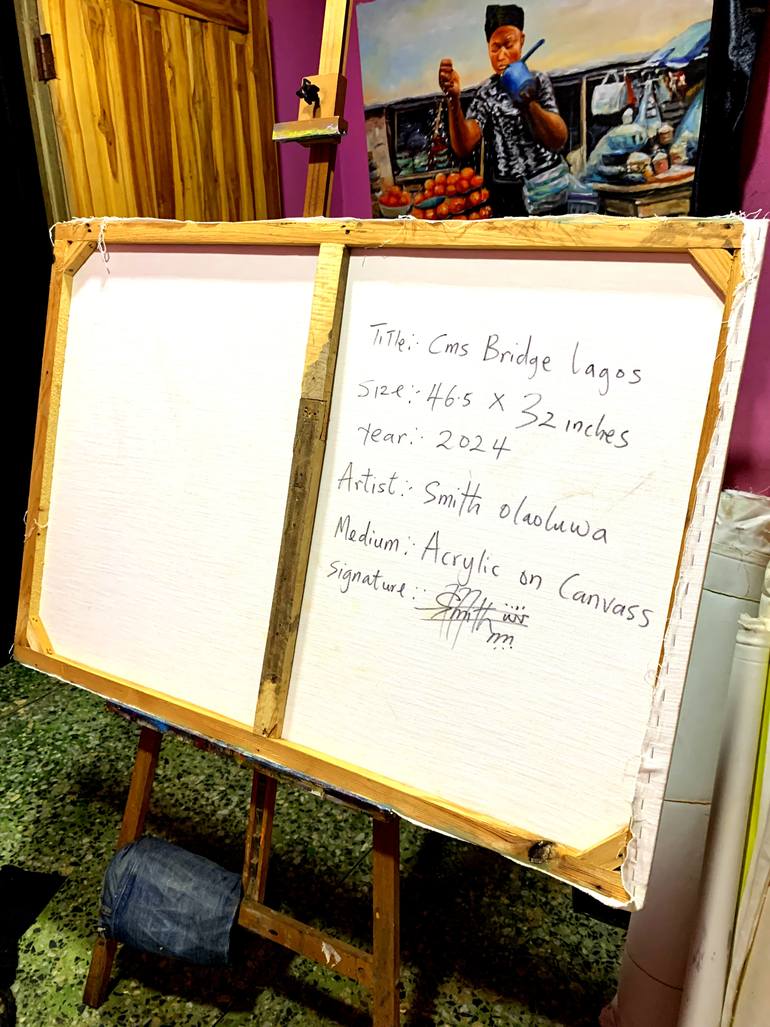 Title:- Cms Bridge lagos
Size:- 46.5 X 32 inches
Year:- 2024
Artist:- Smith olaoluwa
Medium:- Acrylic on Canvass
Signature:- Smith